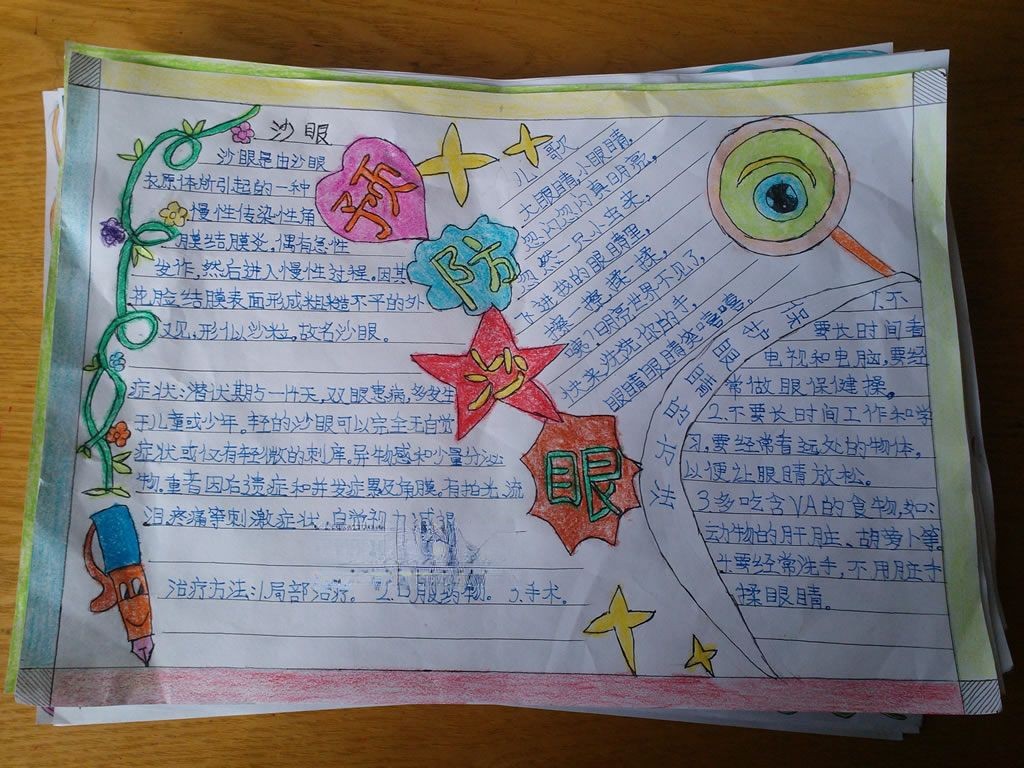 预
防
沙
眼
沙眼
沙眼是由沙眼
衣原体所引起的一种
慢性传染性角
膜结膜炎,偶有急性
发作,然后进入慢性过程。因其
在睑结膜表面形成粗糙不平的外
观,形似沙粒,故名沙眼。
症状:潜伏期5一14天,双眼患病,多发生
于儿童或少年。轻的沙眼可以完全无自觉
症状或仅有轻微的刺痒。异物感和少量分泌
物,重者因后遗症和并发症累及角膜。有怕光、流
泪,疼痛等刺激症状,自觉视力减退
治疗方法:1局部治疗。2.口服药物。3.手术。
儿歌
大眼睛,小眼睛,
忽闪忽闪真明亮。
忽然一只小虫来,
飞进我的眼睛里,
擦一擦,揉一揉,
咦?明亮世界不见了,
快来洗洗你的手,
眼睛眼睛亮晶晶。
保护眼睛的方法
1.不
要长时间看
电视和电脑,要经
常做眼保健操。
2.不要长时间工作和学
习,要经常看远处的物体,
以便让眼睛放松。
3.多吃含VA的食物,如:
动物的肝脏、胡萝卜等。
4要经常洗手,不用脏手
揉眼睛。